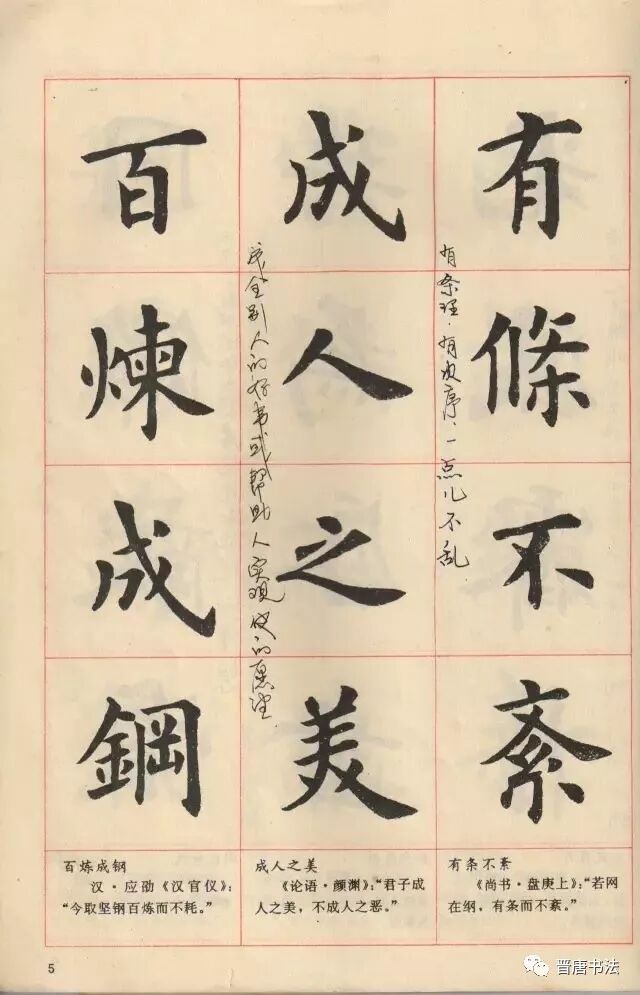 有條不紊
有条理·有次序,一点儿不乱
成人之美
成全别人的好事或帮助人实现他的愿望.
百煉成鋼
有条不紊
《尚书·盘庚上》:“若网
在纲,有条而不紊。”
成人之美
《论语·颜渊》:“君子成
人之美,不成人之恶。”
百炼成钢
汉·应劭《汉官仪》:
“今取坚钢百炼而不耗。”
5
晋唐书法